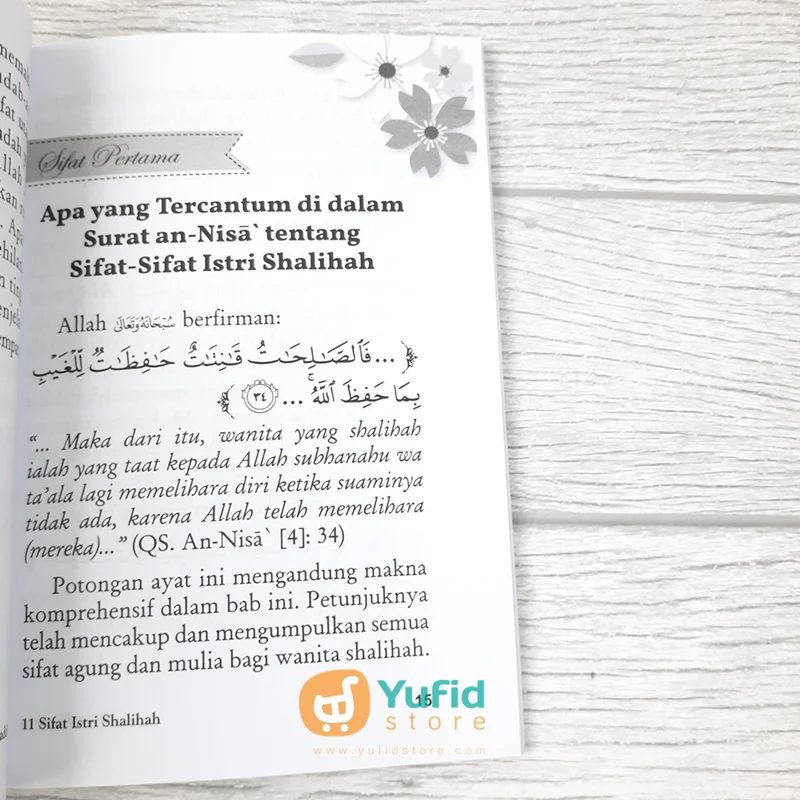 Sifat Pertama
Apa yang Tercantum di dalam
Surat an-Nisā` tentang
Sifat-Sifat Istri Shalihah
Allah سُبْحَانَهُ وَتَعَالَىٰ berfirman:
﴿ ... فَٱلصَّـٰلِحَـٰتُ قَـٰنِتَـٰتٌ حَـٰفِظَـٰتٌ لِّلْغَيْبِ
بِمَا حَفِظَ ٱللَّهُ ۚ ... ٣٤ ﴾
“... Maka dari itu, wanita yang shalihah
ialah yang taat kepada Allah subhanahu wa
ta’ala lagi memelihara diri ketika suaminya
tidak ada, karena Allah telah memelihara
(mereka)...” (QS. An-Nisā` [4]: 34)
Potongan ayat ini mengandung makna
komprehensif dalam bab ini. Petunjuknya
telah mencakup dan mengumpulkan semua
sifat agung dan mulia bagi wanita shalihah.
11 Sifat Istri Shalihah
15
Yufid
store
www.yufidstore.com